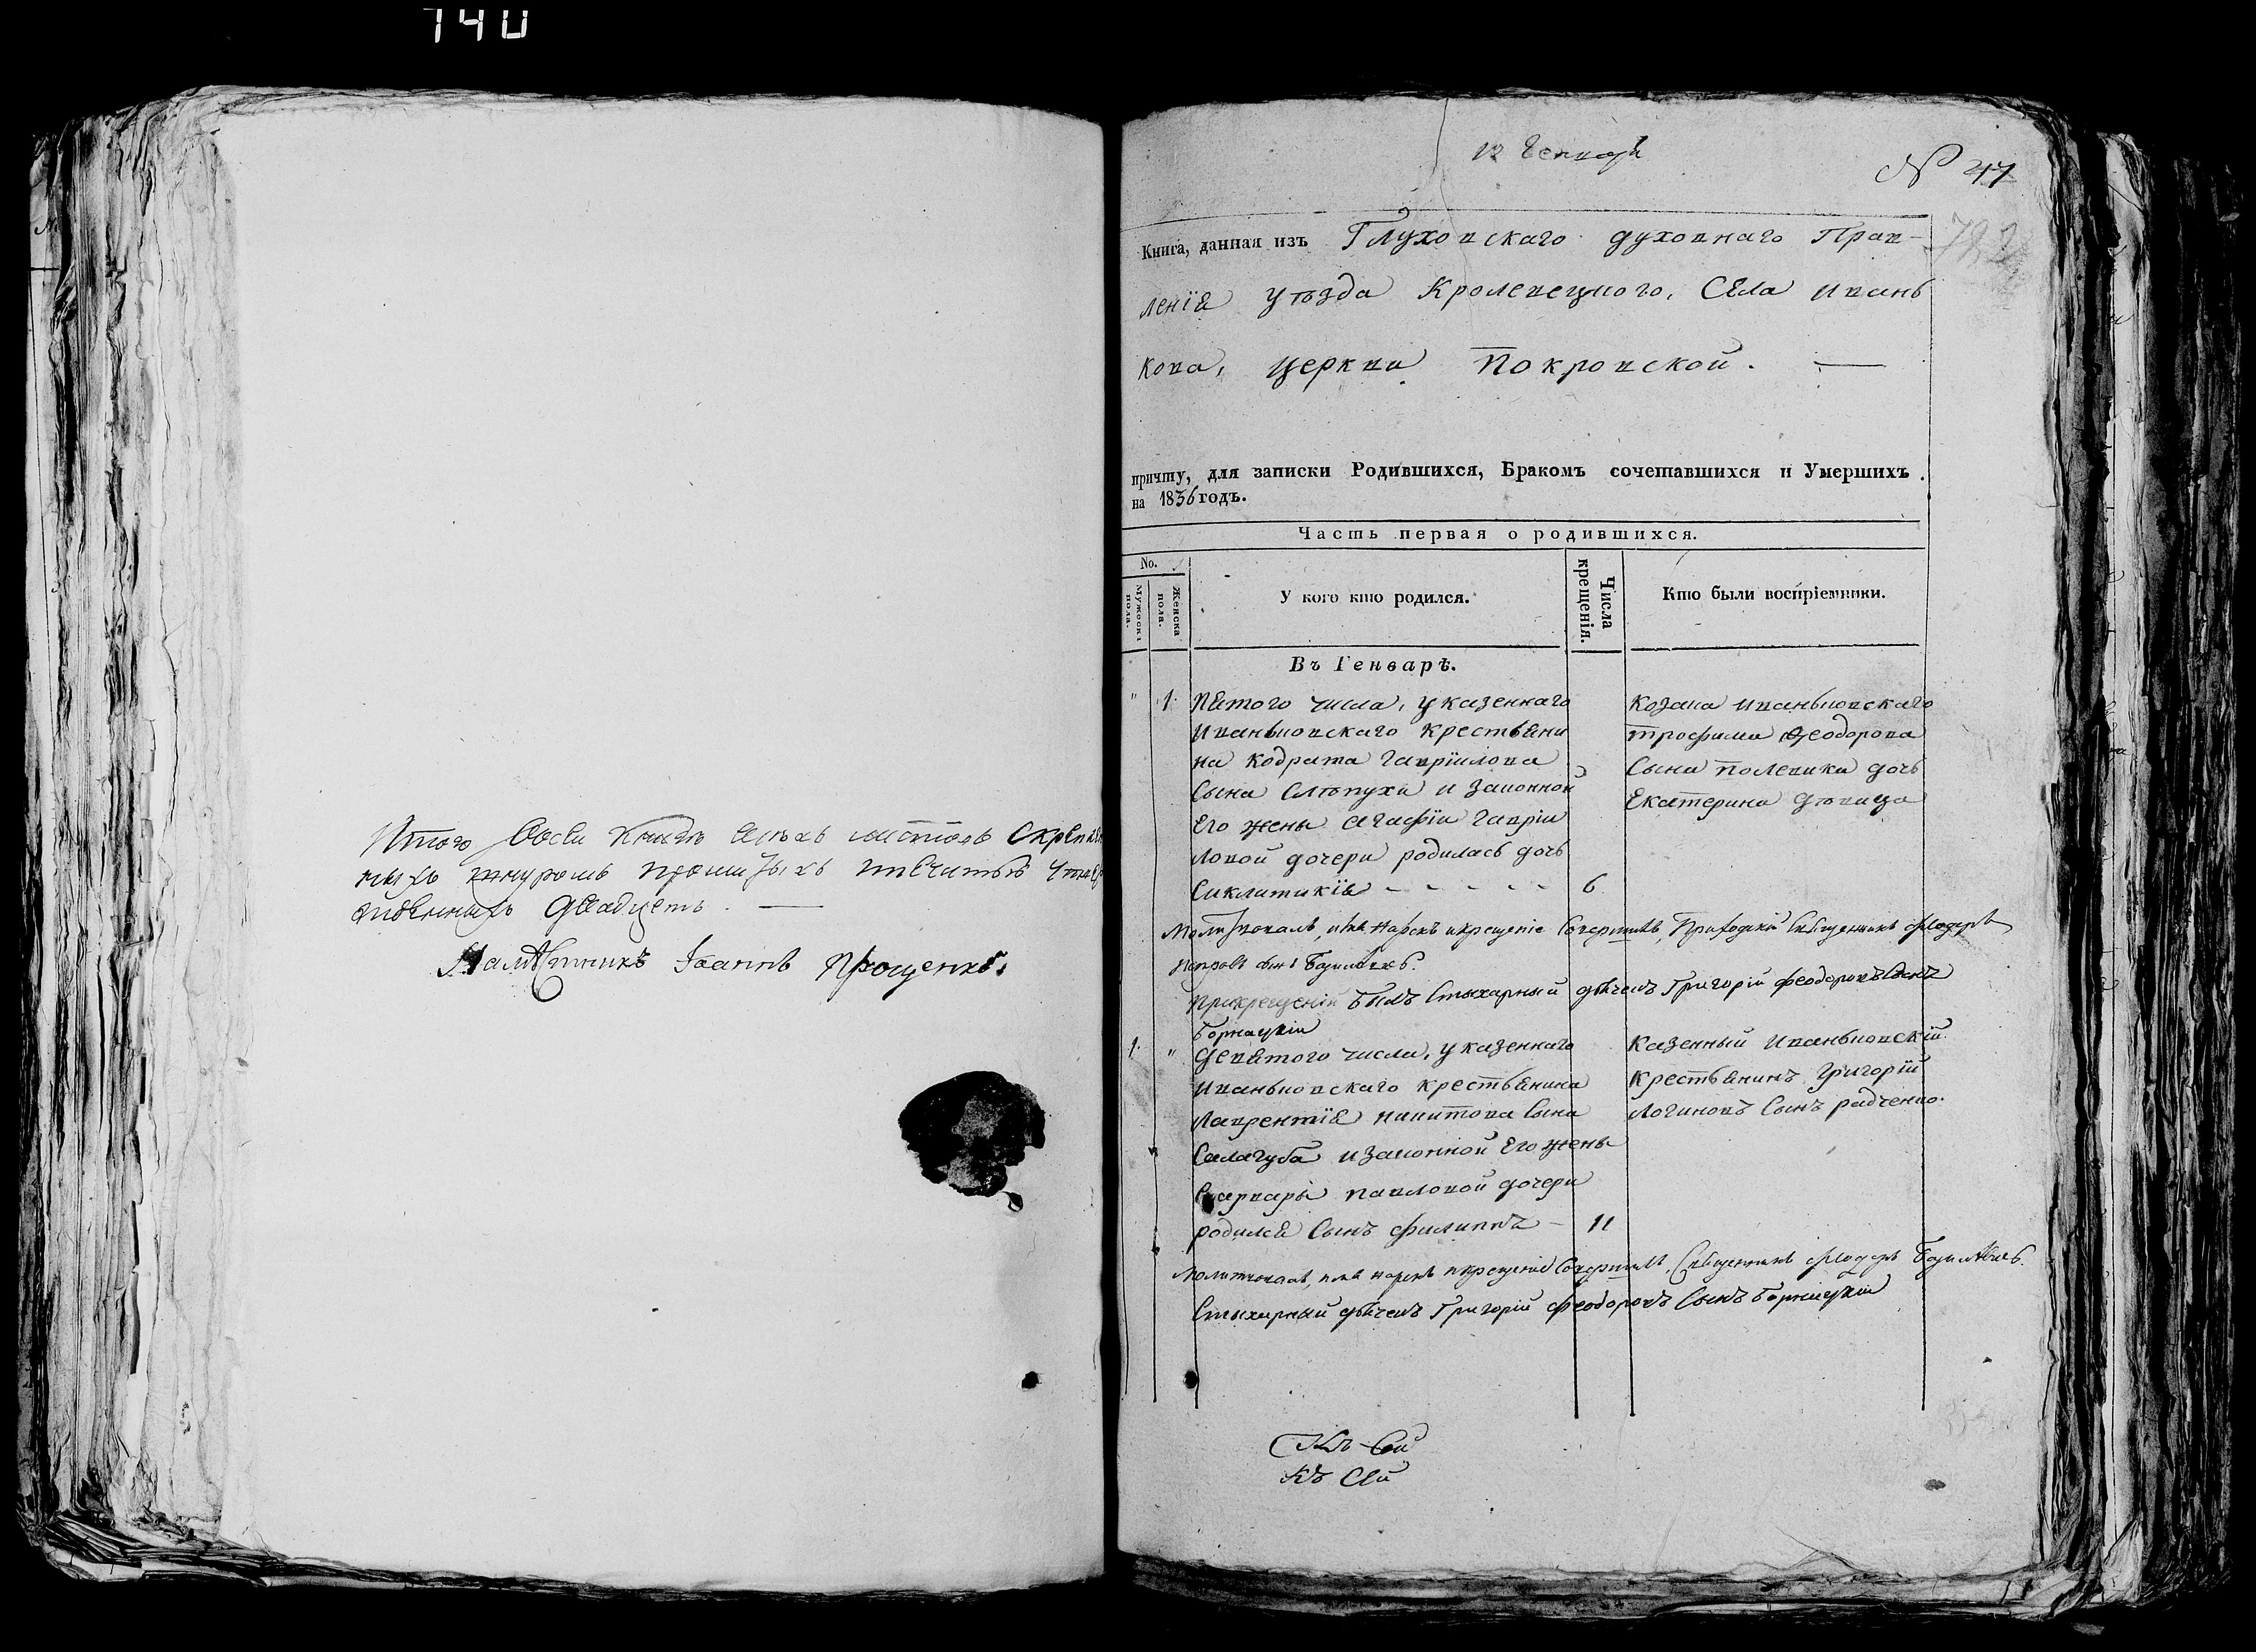 740
Итого Въ сей книгѣ всѣхъ листовъ скреплен
ныхъ шнуромъ прошитыхъ печатью утвер
жденныхъ двадцеть. —
Намѣстникъ Іоаннъ Прощенко.
12 Генваря
№ 47
Книга, данная изъ Глуховскаго духовнаго Прав-
ленія уѣзда Кролевецкого, Села Ивань
кова, церкви Покровской. —
причту, для записки Родившихся, Бракомъ сочетавшихся и Умершихъ
на 1836 годъ.
Часть первая о родившихся.
No.
Мужескі пола.
Женска пола.
У кого кто родился.
Числа крещенія.
Кто были воспріемники.
Въ Генварѣ.
" 1. Пятого числа, у казеннаго
Иваньковскаго крестьяни
на Кодрата Гавріилова
Сына Слѣпухи и законной
Его жены Агафіи Гаврии
ловой дочери родилась дочь
Сиклитикія - - - - - 6
Козака Иваньковскаго
трофима Феодорова
Сына Полевика дочь
Екатерина дѣвица
Молитвовалъ, имя нарекъ и крещеніе Совершилъ, Приходскій Священникъ
При крещеніи былъ Стихарный дьячекъ Григорій Феодоровъ Сынъ
Борнацкій
1. " Девятого числа, у казеннаго
Иваньковскаго крестьянина
Лаврентія Никитова Сына
Салагуба и законной Его жены
Варвары Павловой дочери
родился Сынъ Филиппъ — 11
Казенный Иваньковскій
крестьянинъ Григорій
Логиновъ Сынъ радченко.
Молитвовалъ, имя нарекъ и крещеніе Совершилъ, Священникъ
Стихарный дьячекъ Григорій Феодоровъ Сынъ Борнацкій
Къ Сей
Къ Сей